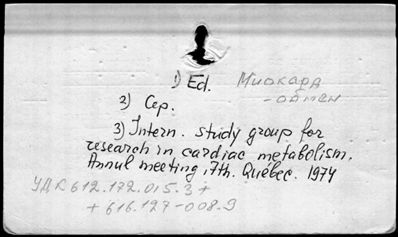 1) Ed. Миокард
- обмен
2) Сер.
3) Intern. study group for
research in cardiac metabolism.
Annul meeting, 7th. Québec. 1974
УДК 612.172.015.3 +
+ 616.127-008.9